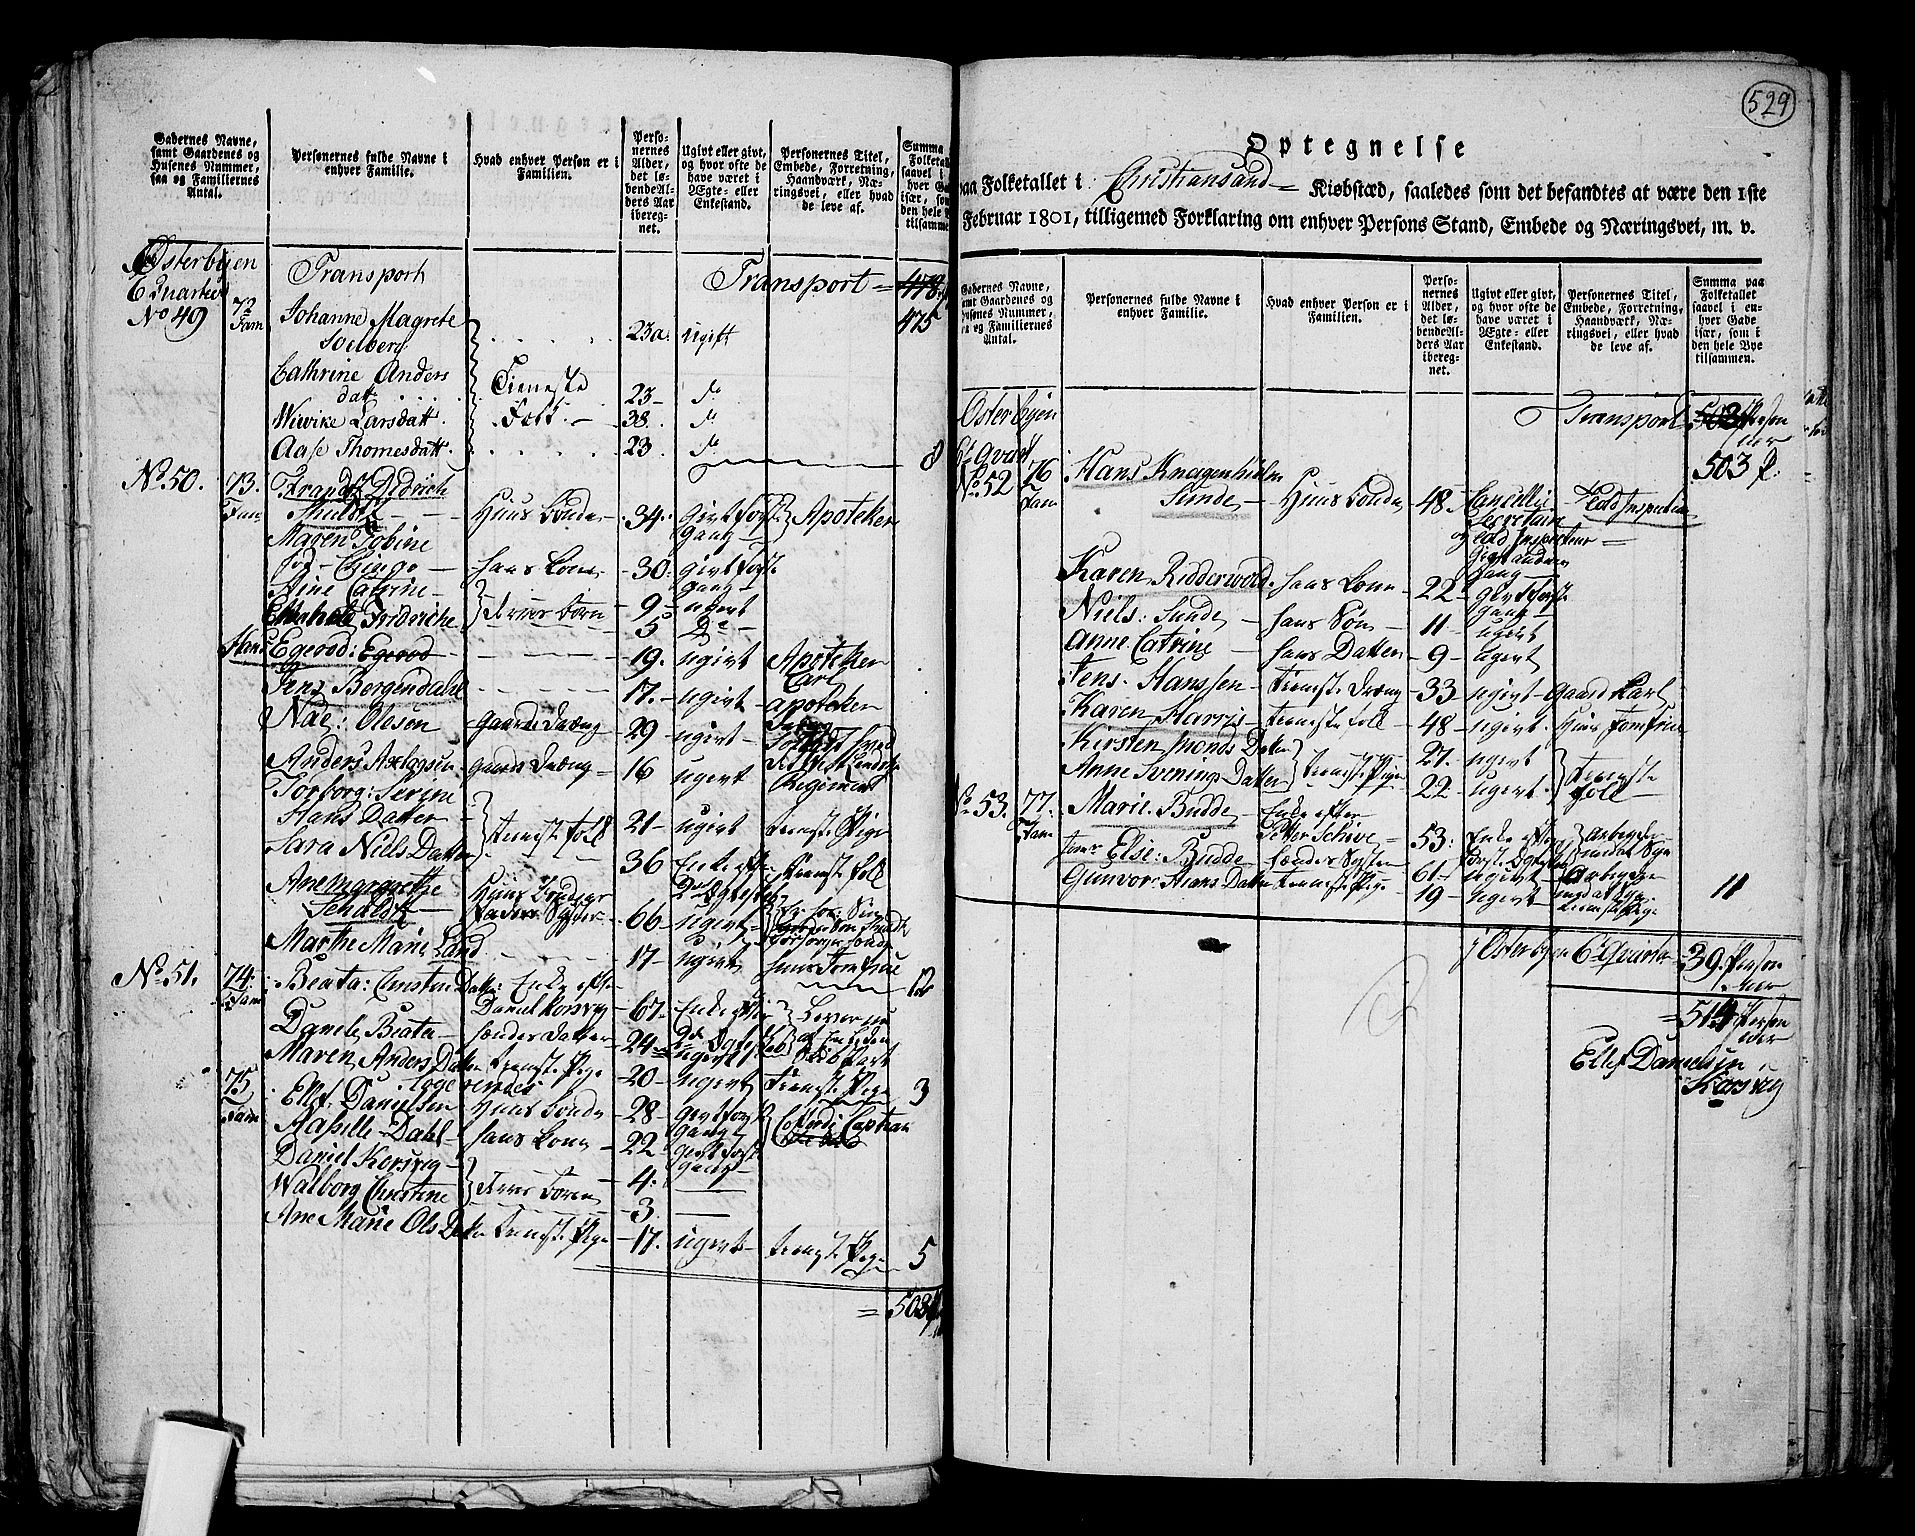 Gadernes Navne,
samt Gaardenes og
Husenes Nummer,
saa og Familiernes
Antal.
Personernes fulde Navne i
enhver Familie.
Hvad enhver Person er i
Familien.
Perso-
nernes
Alder,
det lø-
bende Al-
ders Aar
iberegn-
net.
Ugivt eller givt,
og hvor ofte de
have været i
Ægte- eller
Enkestand.
Personernes Titel,
Embede, Forretning,
Haandværk, Næ-
ringsvei, eller hvad
de leve af.
Summa
Folketal
saavel i
hver Ga
især, so
den hele
tilsamme
Østerbyen Transport Transport = 478
6 Quarteer
No 49 72 Fam Johanne Magrete
Solberg 23 ugift 475
Cathrine Anders
datt Tieneste 23- do
Wivike Larsdatt Folk - 38. do
Aase Thomesdatt 23 do 8
No. 50. 73. Frandz Didrich
Fam Shuldt - Huus Bonde - 34. givt første Apoteker
gang
Magen Jobine
- hans Kone - 30. givt første
gang
Nine Catrine - 9- ugivt
Fridriche 5 Do -
Hans Egerod: Egerod 19. ugivt Apoteker
Karl
Jens Bergendahl 17. - ugivt - apoteker
Nae: Olesen - gaards Dræng - 29 - ugivt -
Anders gaards Dræng - 16 ugivt Regiment
Torborg: Serine
Hans Datter 21- ugivt tieneste Pige
Sara Niels Datter tieneste folk 36 Enke tieneste folk
Anemargrethe Huus Bondens
Schuldt Fader Søster 66- ugivt -
Marthe Marie Land 17- ugivt huus Jomfrue 12
No. 51. 74. Beata: Christens Datter Enke efter
Fam Daniel Korsvig 67. Enke Lever
Danele Beate hendes Datter 24 ugivt
Maren Anders Datter tieneste Pige 20- ugivt tieneste Pige 3
75 Ellef: Danielsen Huus Bonde - 28- givt første
Fam gang Captein
Dahl - hans Kone - 22 givt første
gang
Daniel Korsvig - 4. -
Walborg Christine 3. -
Ane Marie Ols Datter tieneste Pige - 17. ugivt tieneste Pige 5
= 503
529
Optegnelse
paa Folketallet i Christiansand Kiøbstæd, saaledes som det befandtes at være den 1ste
Februar 1801, tilligemed Forklaring om enhver Persons Stand, Embede og Næringsvei, m. v.
Gadernes Navne,
samt Gaardenes og
Husenes Nummer,
saa og Familiernes
Antal.
Personernes fulde Navne i
enhver Familie.
Hvad enhver Person er i
Familien.
Perso-
nernes
Alder,
det lø-
bende Al-
ders Aar
ibereg-
net.
Ugivt eller givt,
og hvor ofte de
have været i
Ægte- eller
Enkestand.
Personernes Titel,
Embede, Forretning,
Haandværk, Næ-
ringsvei, eller hvad
de leve af.
Summa paa
Folketallet
saavel i en-
hver Gade
især, som i
den hele Bye
tilsammen.
Østerbyen Transport 503 Person
ner
503 P:
No. 52 76 Hans Knagenhielm
Fam Sunde - Huus Bonde 48 Cancellie Told Inspecteur
Secretair
og Told Inspecteur
gang
Karen Ridderwold. hans Kone - 22- givt første
gang -
Niels: Sunde - hans Søn - 11- ugivt
Anne Catrine - hans Datter - 9- ugivt
Jens. Hanssen - tieneste Dræng - 33 ugivt - Gaard Karl
Karen Harris - tieneste folk - 48 - ugivt. Huus Jomfrue
Kirsten Monds Datter 27. ugivt tieneste
Anne Svenings Datter tieneste Pige 22 - ugivt. folk
No. 53. 77. Marie. Budde - Enke efter
Fam Petter Schive - 53: Enke
Else: Budde hendes Søster 61- ugivt
Gunvor: Hans Datter tieneste Pige - 19 - ugivt tieneste Pige 11
i Østerbyen 6 Quarteer 39. Person
ner
= 514 Person
ner
Ellef Danielsen
Korsvig